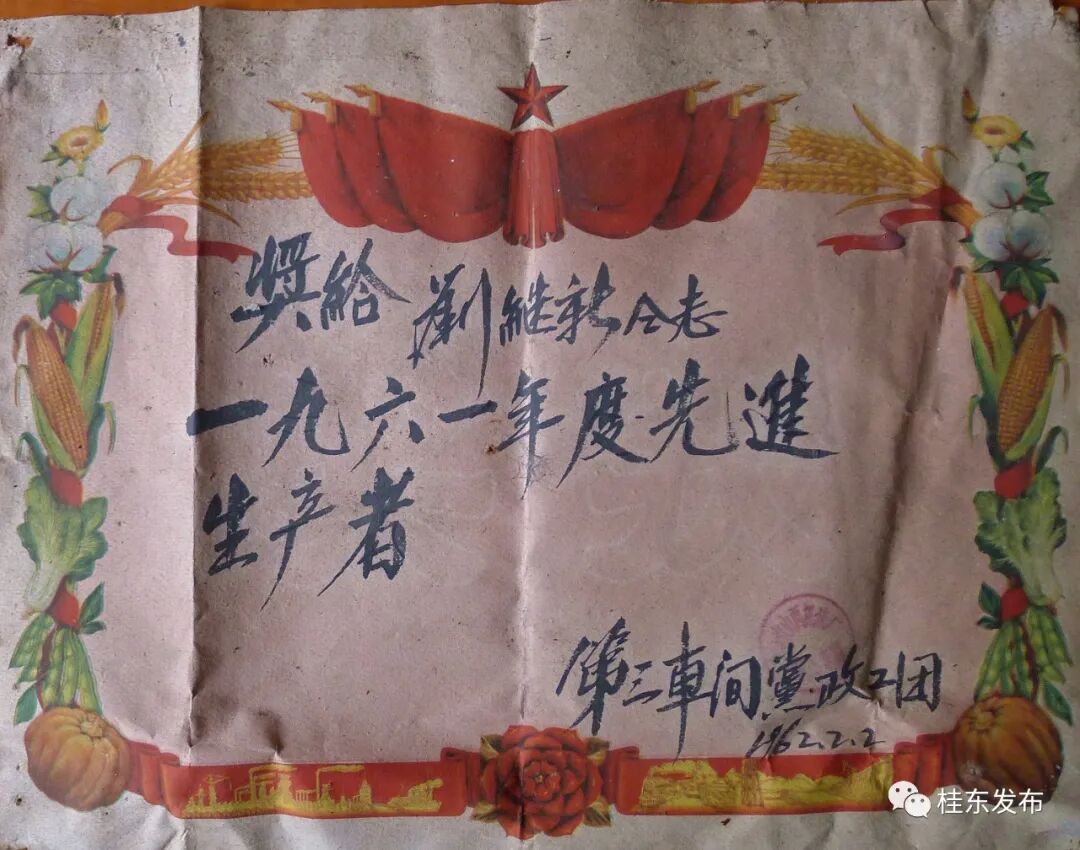 奬給 劉継新仝志
一九六一年度先進
生产者
第三車间黨政工团
1962.2.2
桂东发布